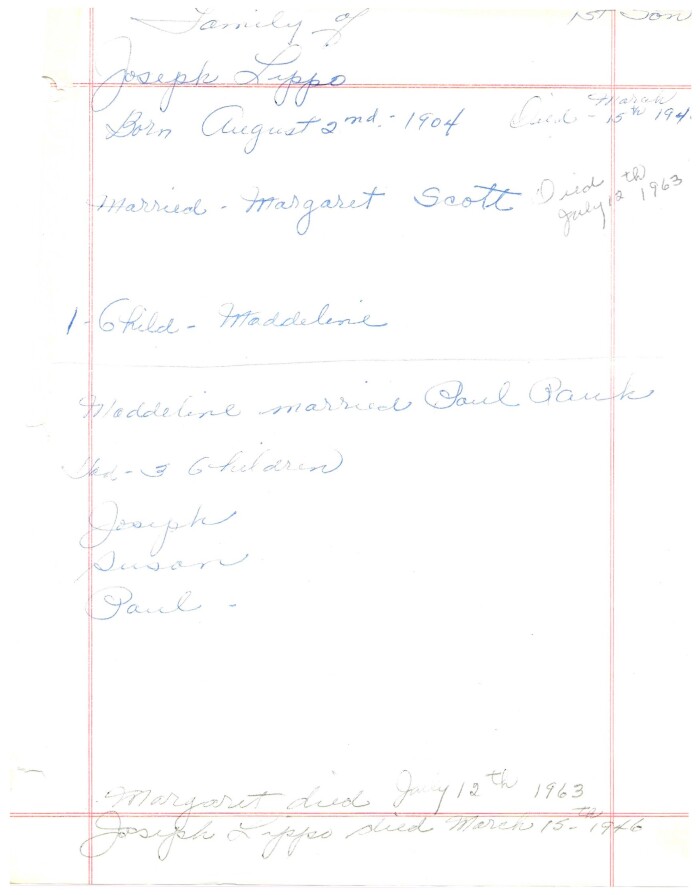 Family of
1st Son
Joseph Lippo
Born August 2nd. - 1904 Died - March 15th 194
Married - Margaret Scott Died July 12th 1963
1 - Child - Maddeline
Maddeline married Paul Rauk
Had - 3 Children
Joseph
Susan
Paul -
Margaret died July 12th 1963
Joseph Lippo died March 15-th 1946